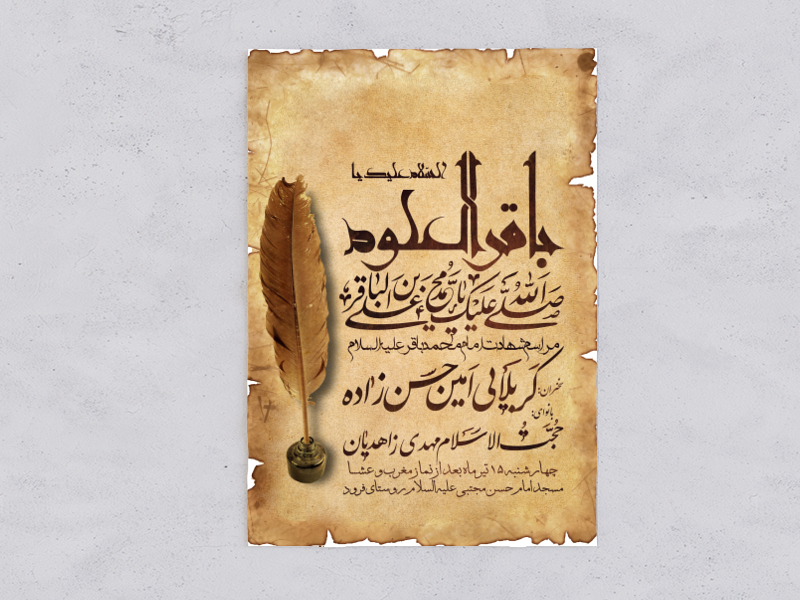 السلام علیک یا
باقر العلوم
صلی الله علیک یا محمد بن علی الباقر
مراسم شهادت امام محمد باقر علیه السلام
سخنران: کربلایی امین حسن زاده
بانوای:
حجت الاسلام مهدی زاهدیان
چهارشنبه ۱۵ تیر ماه بعد از نماز مغرب و عشا
مسجد امام حسن مجتبی علیه السلام روستای فرود